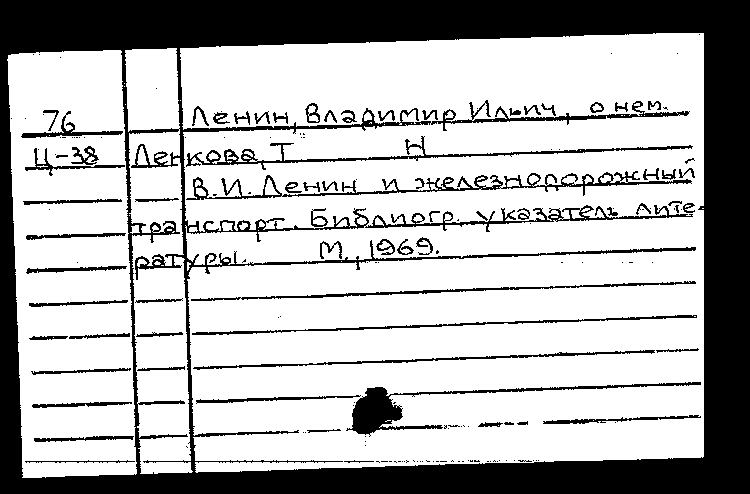 76 Ленин, Владимир Ильич, о нем.
Ц-38 Ленкова, Т Н
В.И. Ленин и железнодорожный
транспорт. Библиогр. указатель лите-
ратуры. М., 1969.